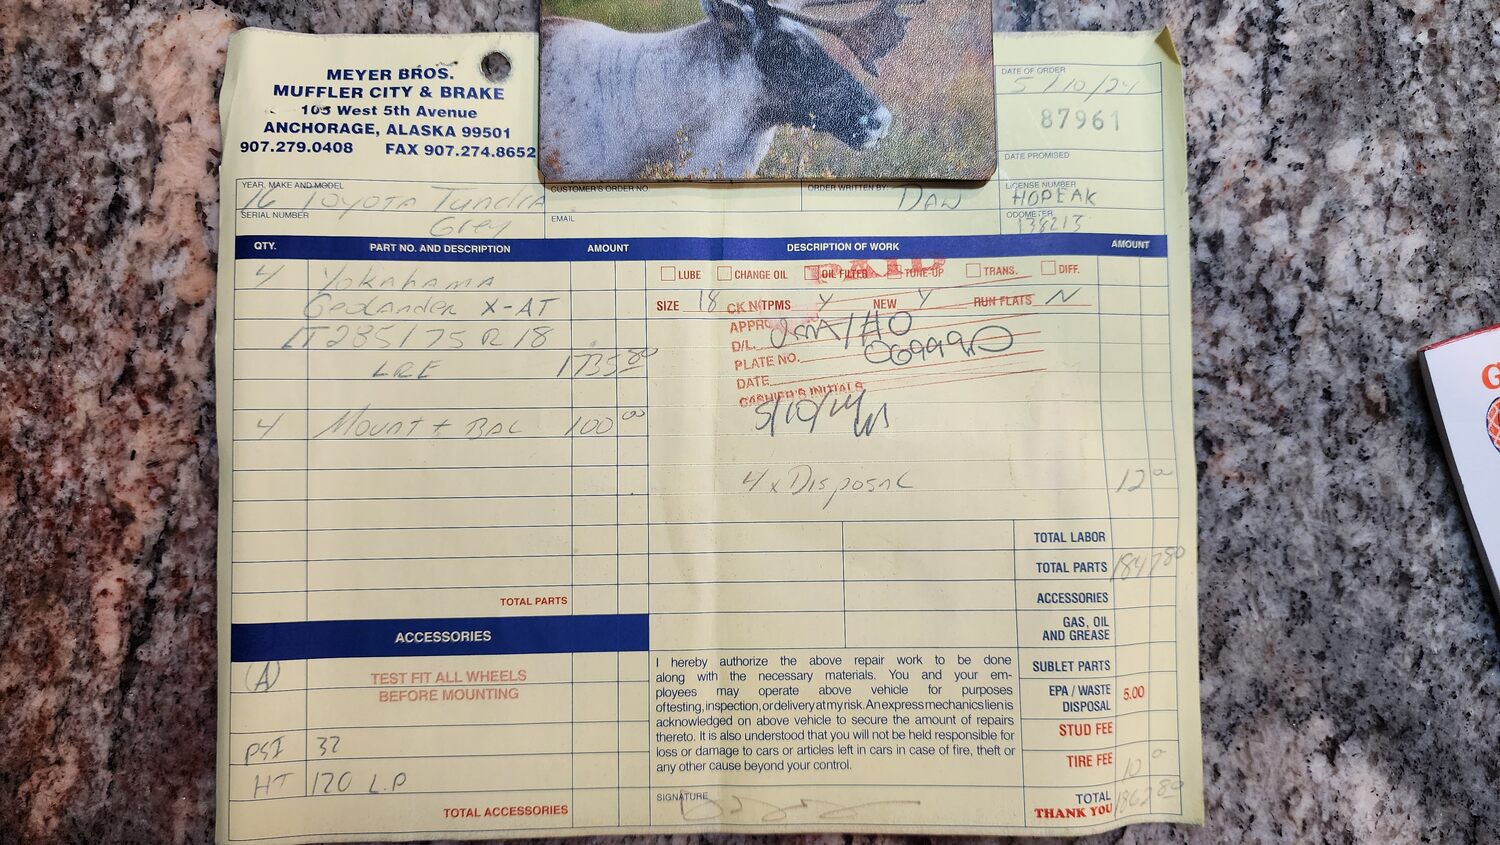 MEYER BROS.
MUFFLER CITY & BRAKE
103 West 5th Avenue
ANCHORAGE, ALASKA 99501
907.279.0408 FAX 907.274.8652
DATE OF ORDER
5/10/24
87961
DATE PROMISED
YEAR, MAKE AND MODEL
16 TOYOTA TUNDRA
CUSTOMER'S ORDER NO.
ORDER WRITTEN BY:
DAW
LICENSE NUMBER
HOPEAK
SERIAL NUMBER
Grey
EMAIL
ODOMETER
138213
QTY. PART NO. AND DESCRIPTION AMOUNT DESCRIPTION OF WORK AMOUNT
4 Yokahama
Geolander X-AT
LT 285/75 R 18
LRE 1735 80
4 MOUNT + BAL 100 00
PAID
LUBE CHANGE OIL OIL FILTER TUNE-UP TRANS. DIFF.
SIZE 18 TPMS Y NEW Y RUN FLATS N
CK N
APPR
D/L
PLATE NO.
06999
DATE
CASHIER'S INITIALS
5/10/24
4 x DISPOSAL 12 00
TOTAL LABOR
TOTAL PARTS 1847 80
ACCESSORIES
GAS, OIL
AND GREASE
SUBLET PARTS
EPA / WASTE
DISPOSAL 5.00
STUD FEE
TIRE FEE 10 00
TOTAL 1862 80
THANK YOU
TOTAL PARTS
ACCESSORIES
(A) TEST FIT ALL WHEELS
BEFORE MOUNTING
PSI 32
HT 120 L.P
TOTAL ACCESSORIES
I hereby authorize the above repair work to be done
along with the necessary materials. You and your em-
ployees may operate above vehicle for purposes
of testing, inspection, or delivery at my risk. An express mechanics lien is
acknowledged on above vehicle to secure the amount of repairs
thereto. It is also understood that you will not be held responsible for
loss or damage to cars or articles left in cars in case of fire, theft or
any other cause beyond your control.
SIGNATURE
G